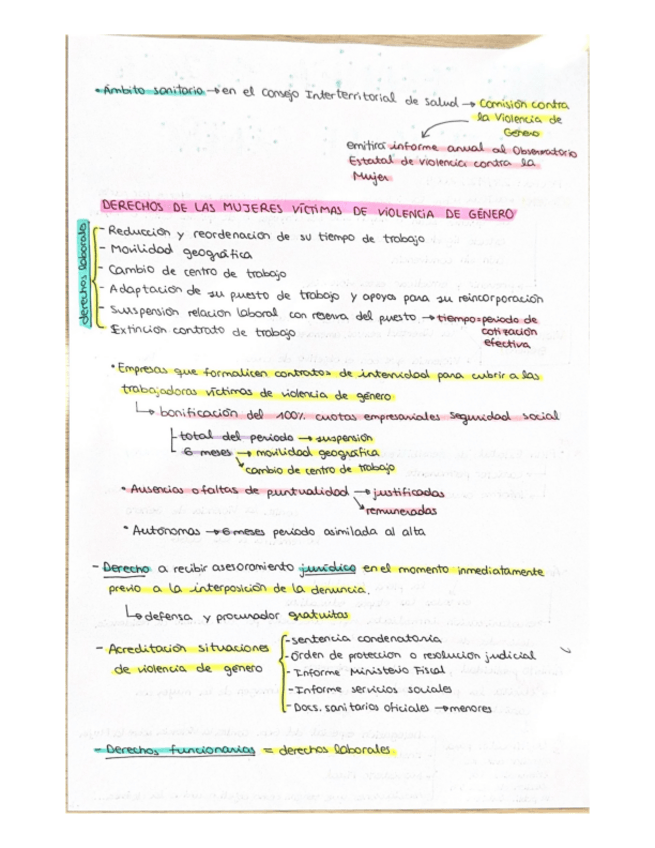 • Ámbito sanitario → en el Consejo Interterritorial de salud → Comisión contra
la Violencia de
Género
emitirá informe anual al Observatorio
Estatal de violencia contra la
Mujer
DERECHOS DE LAS MUJERES VÍCTIMAS DE VIOLENCIA DE GÉNERO
derechos laborales
- Reducción y reordenación de su tiempo de trabajo
- Movilidad geográfica
- Cambio de centro de trabajo
- Adaptación de su puesto de trabajo y apoyos para su reincorporación
- Suspensión relación laboral con reserva del puesto → tiempo = periodo de
cotización
efectiva
- Extinción contrato de trabajo
• Empresas que formalicen contratos de interinidad para cubrir a las
trabajadoras víctimas de violencia de género
↳ bonificación del 100% cuotas empresariales seguridad social
- total del periodo → suspensión
- 6 meses → movilidad geográfica
↘ cambio de centro de trabajo
• Ausencias o faltas de puntualidad → justificadas
↘ remuneradas
• Autónomas → 6 meses periodo asimilada al alta
- Derecho a recibir asesoramiento jurídico en el momento inmediatamente
previo a la interposición de la denuncia.
↳ defensa y procurador gratuitos
- Acreditación situaciones
de violencia de género
- sentencia condenatoria
- orden de protección o resolución judicial
- Informe Ministerio Fiscal
- Informe servicios sociales
- Docs. sanitarios oficiales → menores
- Derechos funcionarias = derechos laborales